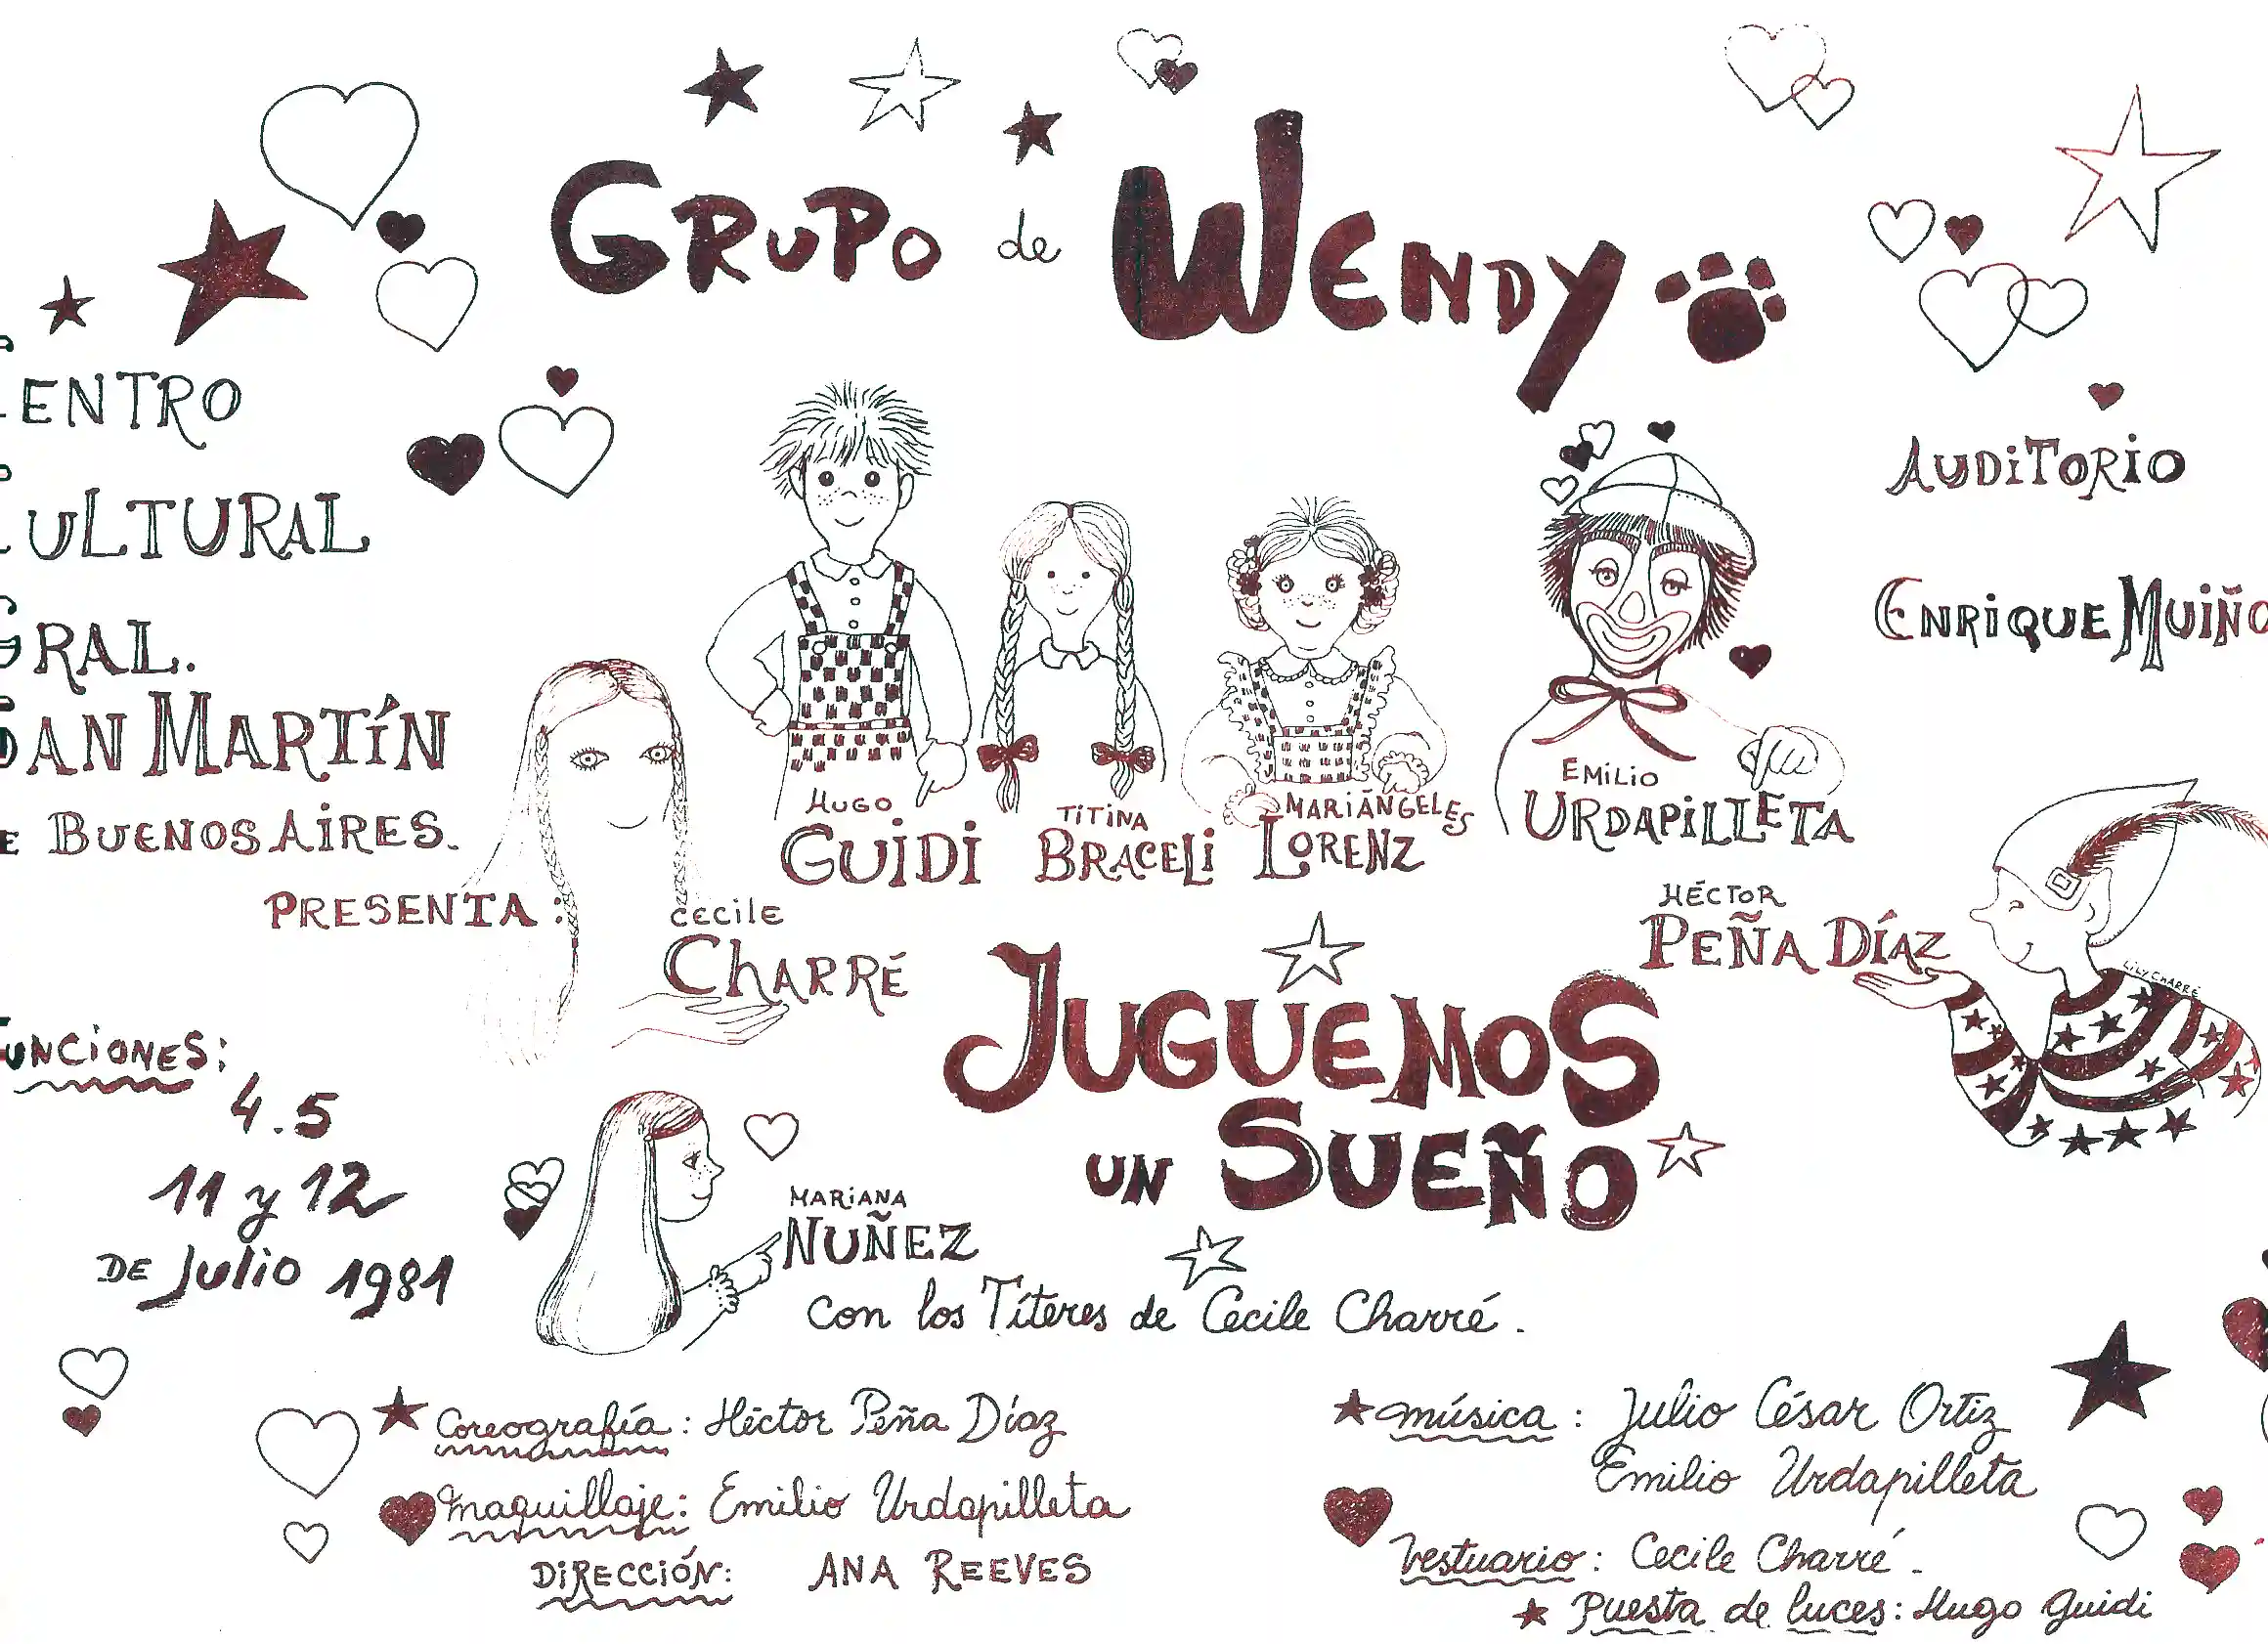 GRUPO de WENDY
CENTRO
CULTURAL
GRAL.
SAN MARTÍN
DE BUENOS AIRES.
PRESENTA:
AUDITORIO
ENRIQUE MUIÑO
HUGO
GUIDI
TITINA
BRACELI
MARIÁNGELES
LORENZ
EMILIO
URDAPILLETA
CECILE
CHARRÉ
HÉCTOR
PEÑA DÍAZ
LILY CHARRÉ
JUGUEMOS
UN SUEÑO
MARIANA
NUÑEZ
con los Títeres de Cecile Charré.
FUNCIONES:
4.5
11 y 12
DE Julio 1981
Coreografía: Héctor Peña Díaz
maquillaje: Emilio Urdapilleta
DIRECCIÓN: ANA REEVES
música: Julio César Ortiz
Emilio Urdapilleta
Vestuario: Cecile Charré.
Puesta de luces: Hugo Guidi